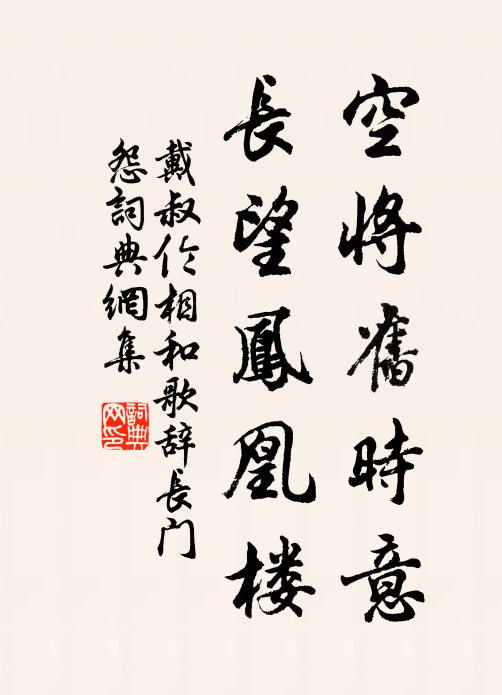 空将舊時意
長望鳳凰楼
戴叔伦相和歌辞長门
怨詞典網集
詞典网印